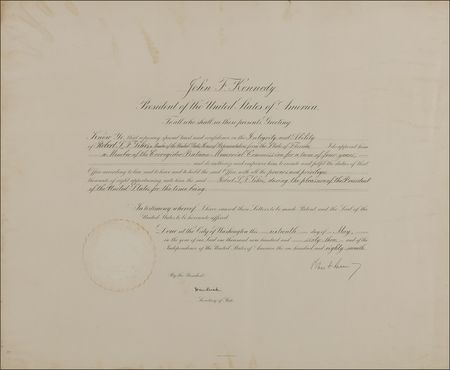 John F. Kennedy
President of the United States of America,
To all who shall see these presents, Greeting:
Know Ye, that reposing special trust and confidence in the Integrity and Ability
of Robert L. F. Sikes, Member of the United States House of Representatives from the State of Florida, I do appoint him
a Member of the Corregidor-Bataan Memorial Commission for a term of four years,
and do authorize and empower him to execute and fulfil the duties of that
Office according to law and to have and to hold the said Office, with all the powers and privileges
thereunto of right appertaining unto him the said Robert L. F. Sikes, during the pleasure of the President
of the United States for the time being.
In testimony whereof, I have caused these Letters to be made Patent and the Seal of the
United States to be hereunto affixed.
Done at the City of Washington this sixteenth day of May,
in the year of our Lord one thousand nine hundred and sixty-three and of the
Independence of the United States of America the one hundred and eighty-seventh.
By the President:
Dean Rusk
Secretary of State.